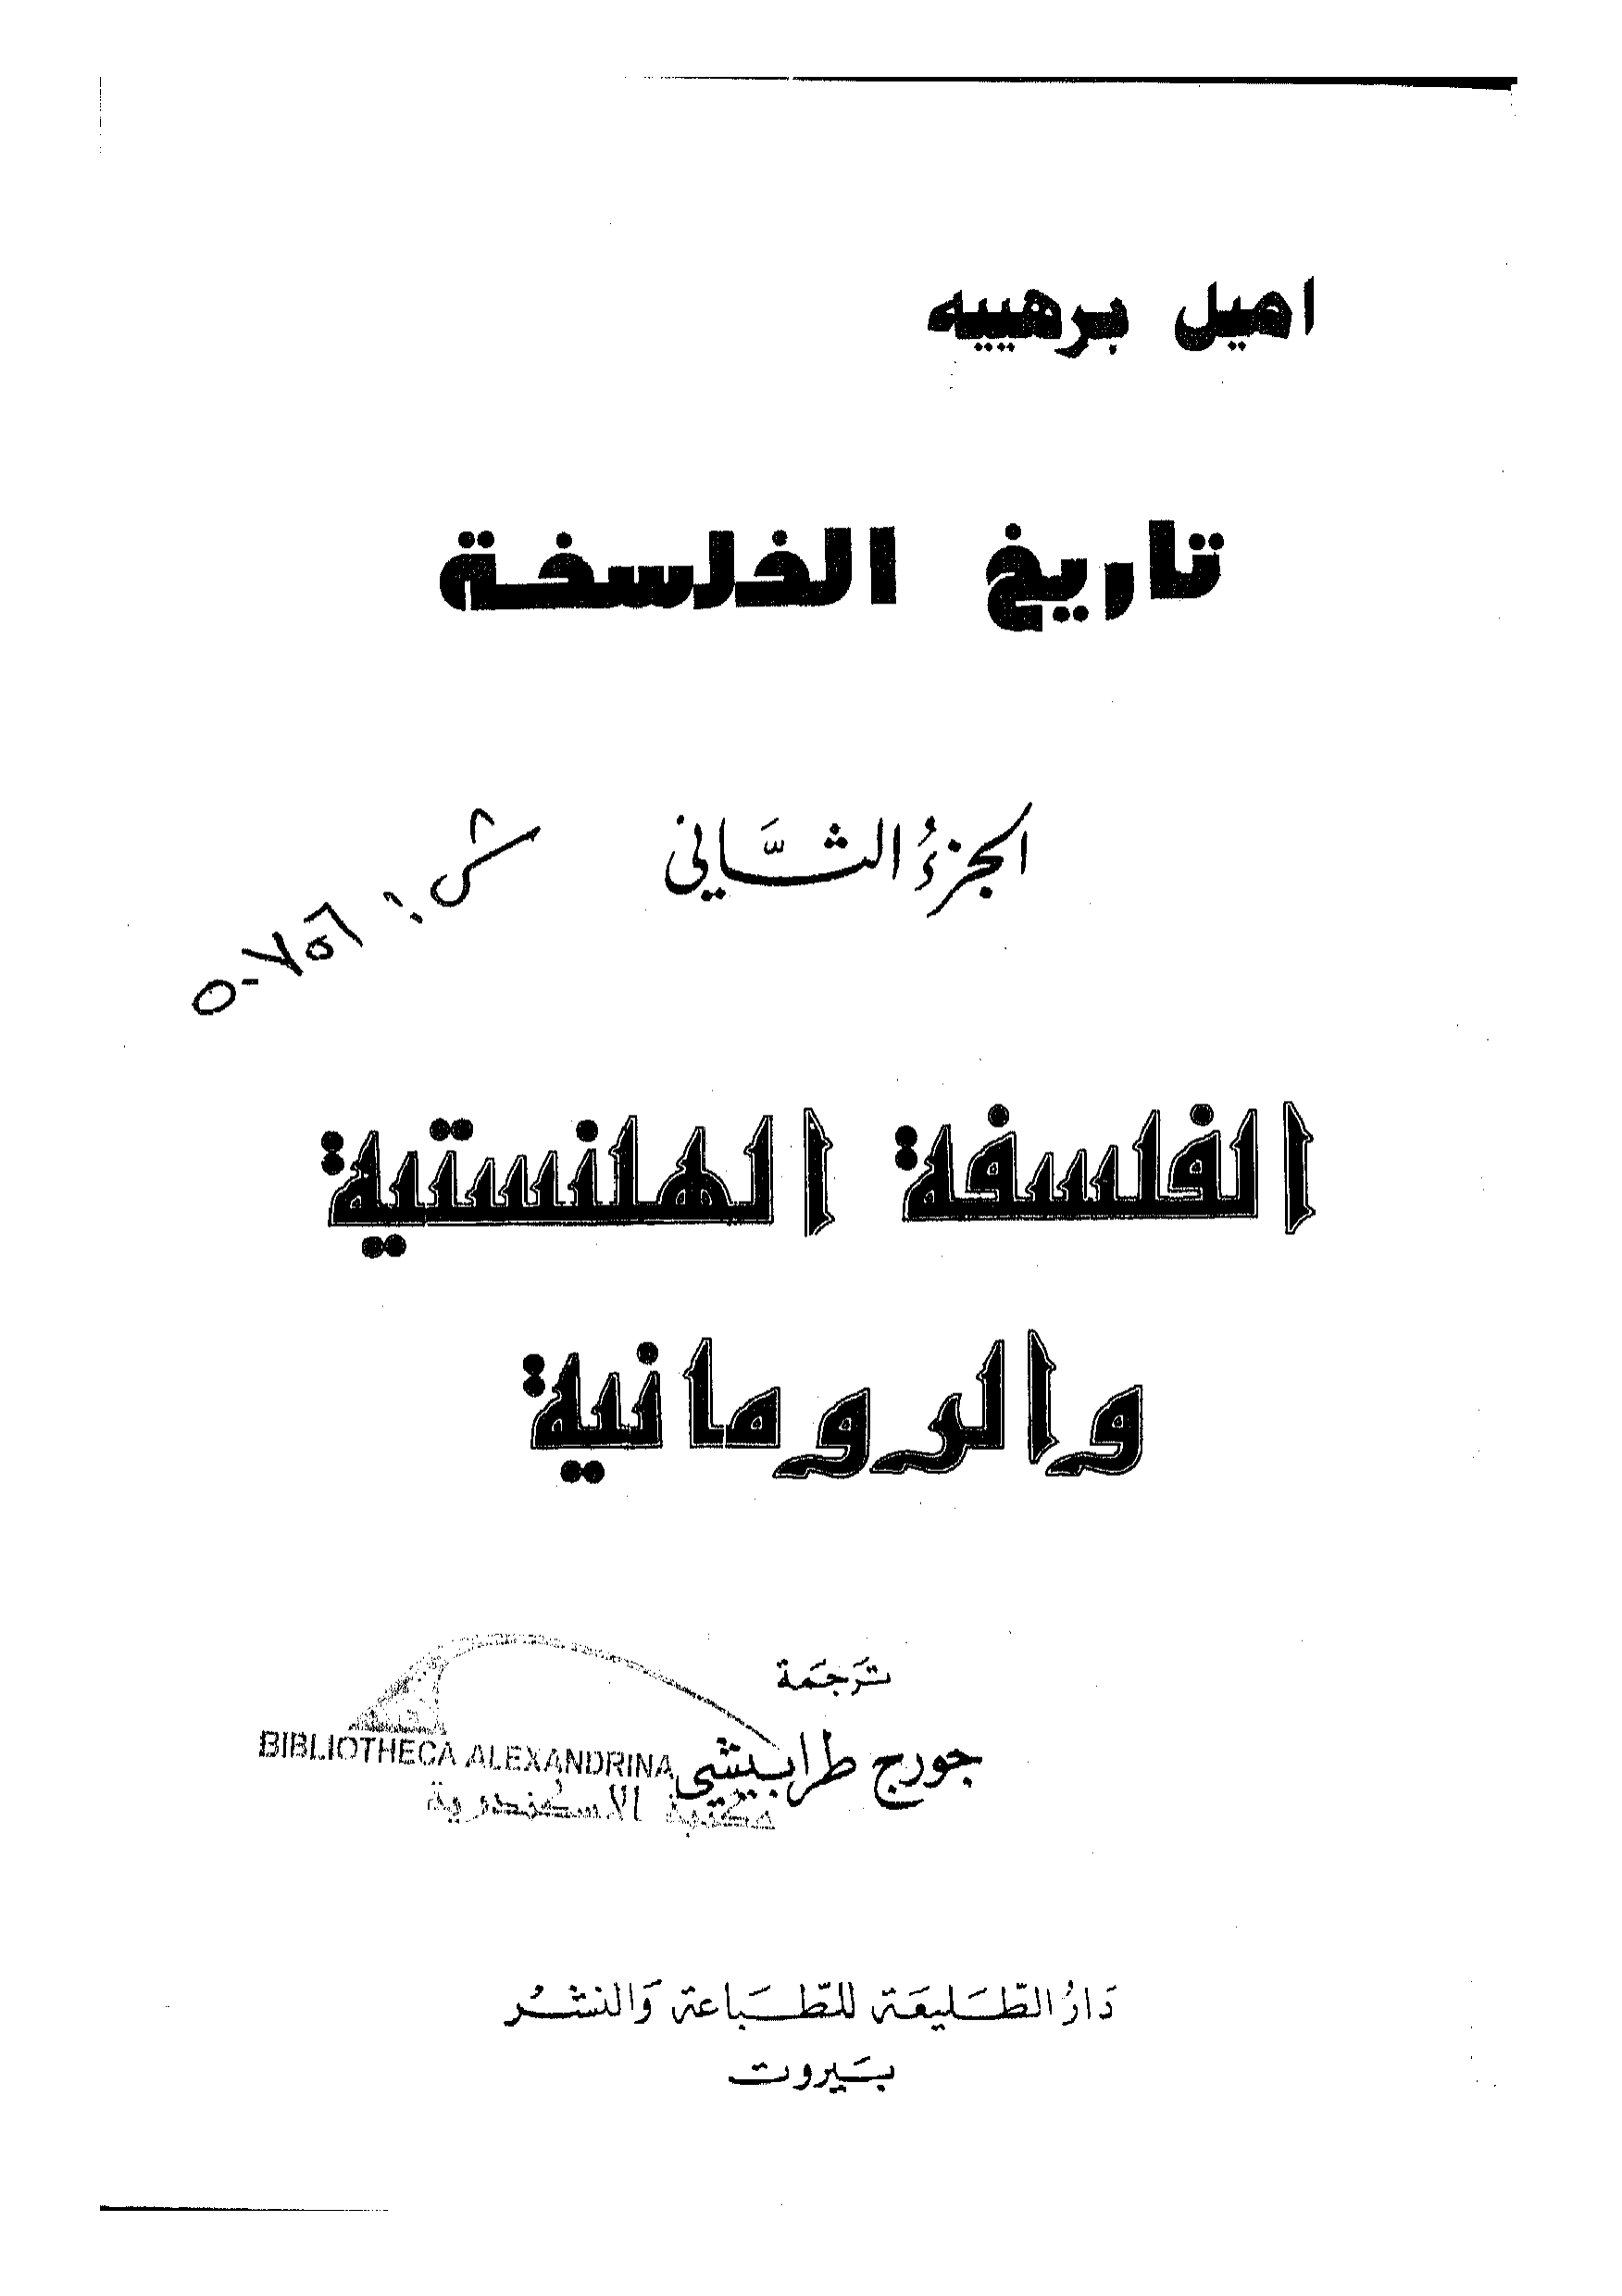 اميل برهييه
تاريخ الفلسفة
الجزءُ الثَّاني
الفلسفة الهلنستية
والرومانية
تَرجَمَة
جورج طرابيشي
BIBLIOTHECA ALEXANDRINA
مكتبة الاسكندرية
دَارُ الطَّليعَة للطّبَاعة وَالنشْر
بَيروت